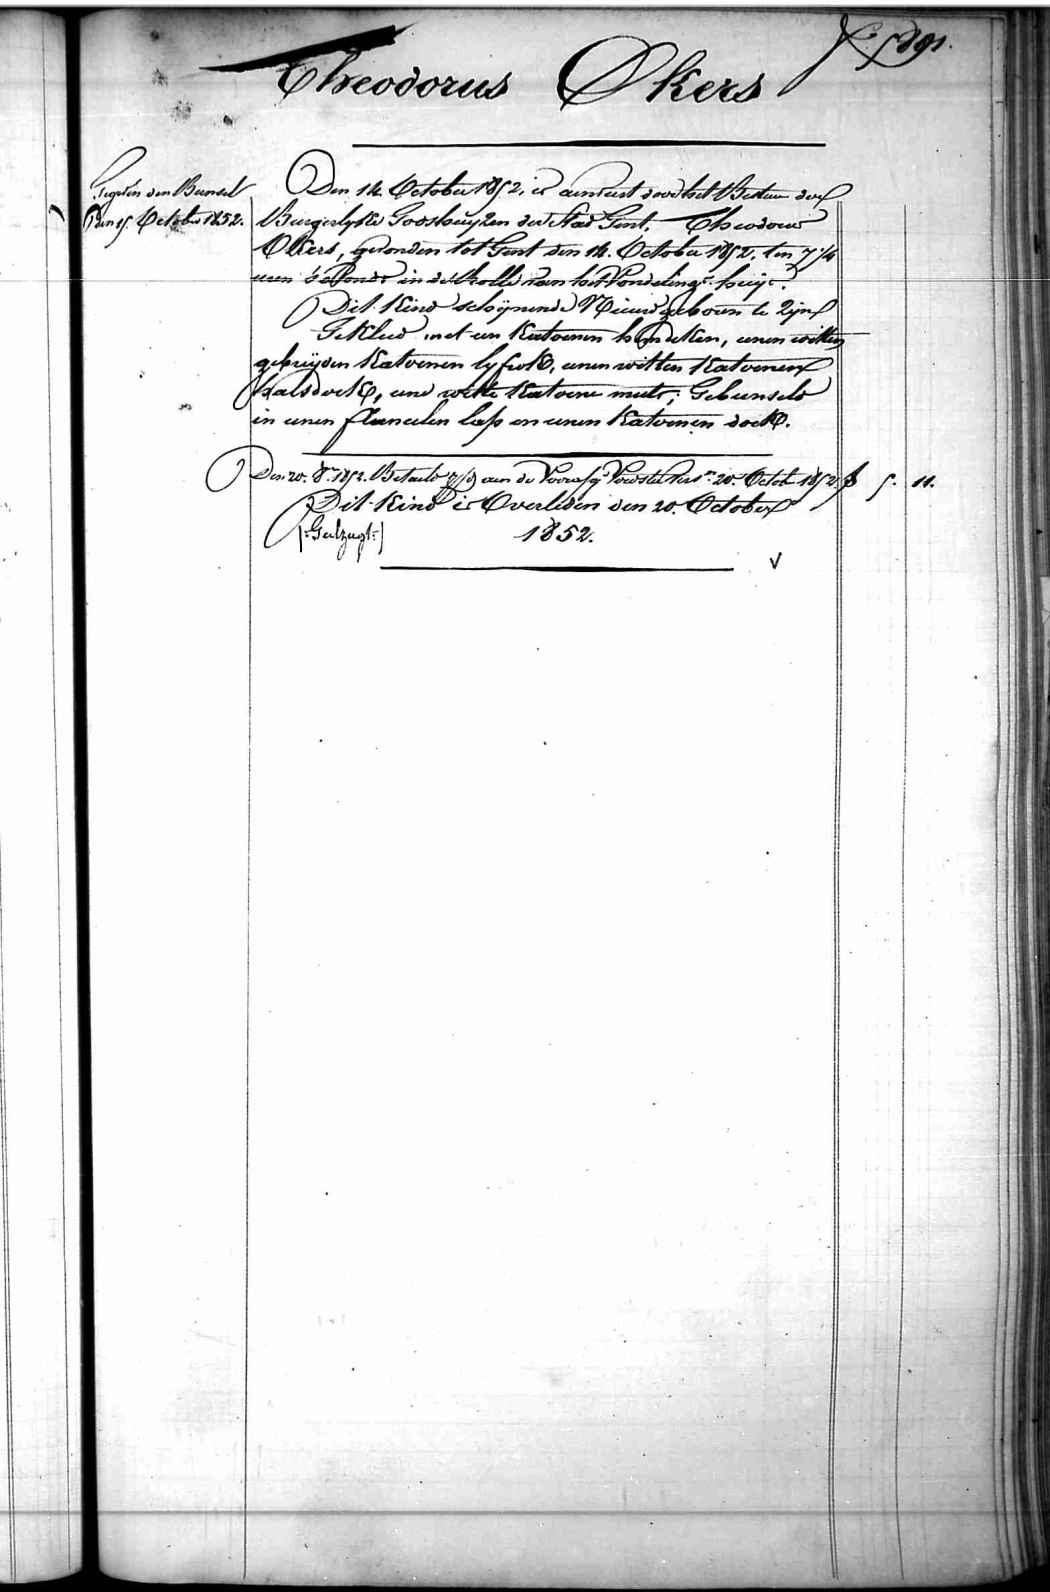 Theodorus Okers
den Bunsel
Den 15. October 1852.
Den 14. October 1852. is aenveert door het Bestuer der
Burgerlyke Godshuyzen der Stad Gent, Theodorus
Okers, gevonden tot Gent den 14. October 1852. ten 7 1/4
uren 's avonds in de Rolle van het Vondelings-huys.
Dit Kind schijnende Nieuwgeboren te Zijn
Gekleed met een Katoenen hemdeken, eenen witten
gebreyden Katoenen lyfrok, eenen witten Katoenen
halsdoek, eene witte Katoene muts; Gebunseld
in eenen flanelen lap en eenen Katoenen doek.
Den 20. 8er 1852. Betaeld aen de Voedster tot 20. Octob. 1852. f 5. 11.
Dit Kind is Overleden den 20. October
1852.
(Geelzugt)